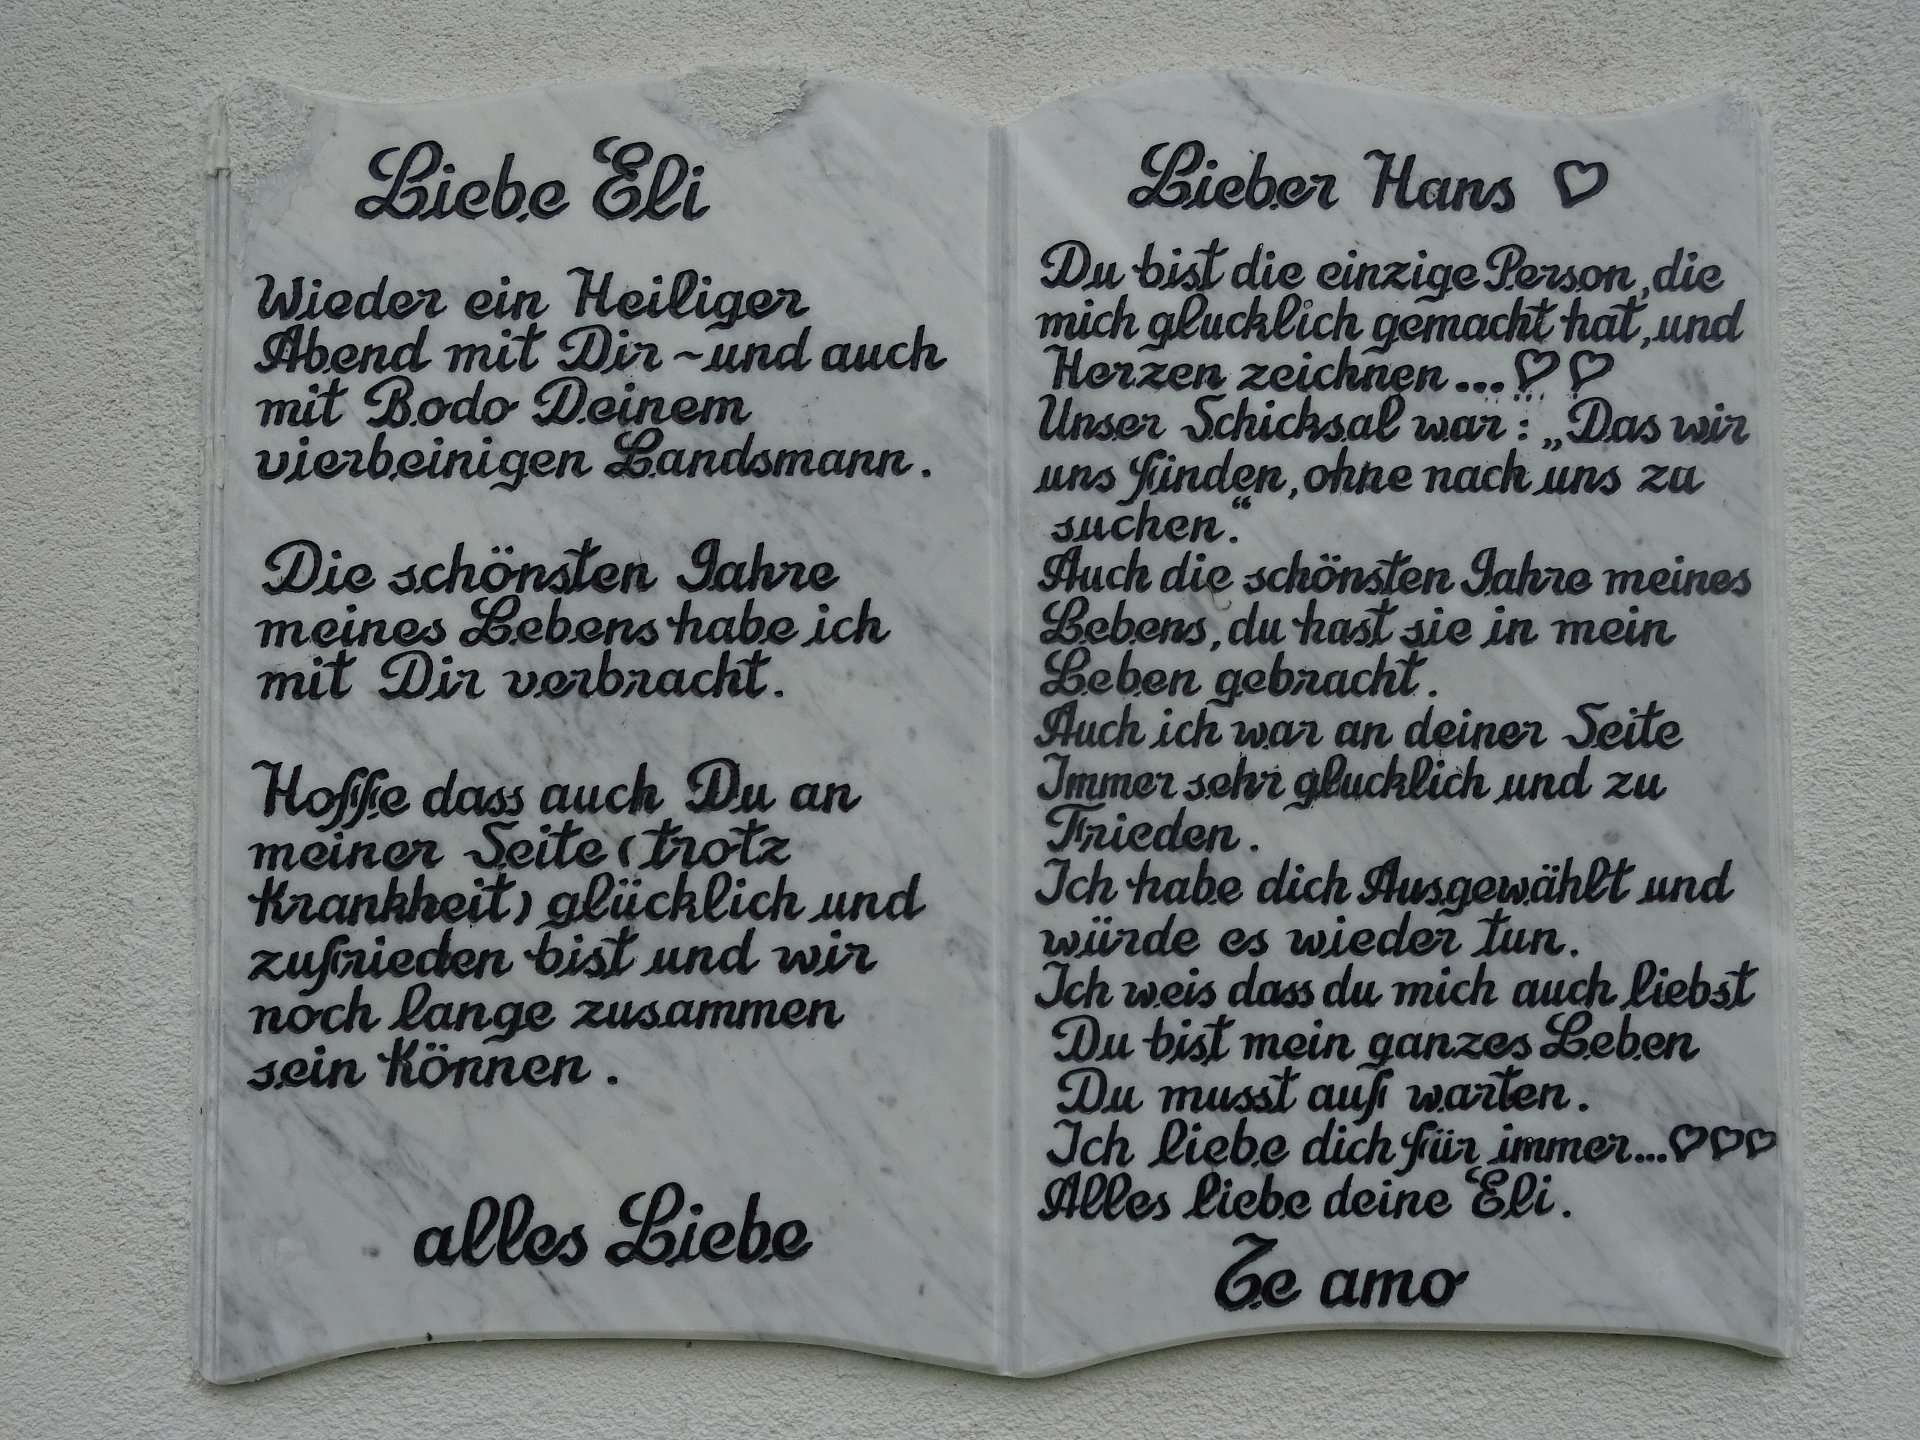 Liebe Eli
Wieder ein Heiliger
Abend mit Dir ~ und auch
mit Bodo Deinem
vierbeinigen Landsmann.
Die schönsten Jahre
meines Lebens habe ich
mit Dir verbracht.
Hoffe dass auch Du an
meiner Seite (trotz
Krankheit) glücklich und
zufrieden bist und wir
noch lange zusammen
sein Können.
alles Liebe
Lieber Hans ♡
Du bist die einzige Person, die
mich glucklich gemacht hat, und
Herzen zeichnen...♡ ♡
Unser Schicksal war: „Das wir
uns finden, ohne nach uns zu
suchen."
Auch die schönsten Jahre meines
Lebens, du hast sie in mein
Leben gebracht.
Auch ich war an deiner Seite
Immer sehr glucklich und zu
Frieden.
Ich habe dich Ausgewählt und
würde es wieder tun.
Ich weis dass du mich auch liebst
Du bist mein ganzes Leben
Du musst auf warten.
Ich liebe dich für immer...♡♡♡
Alles liebe deine Eli.
Te amo